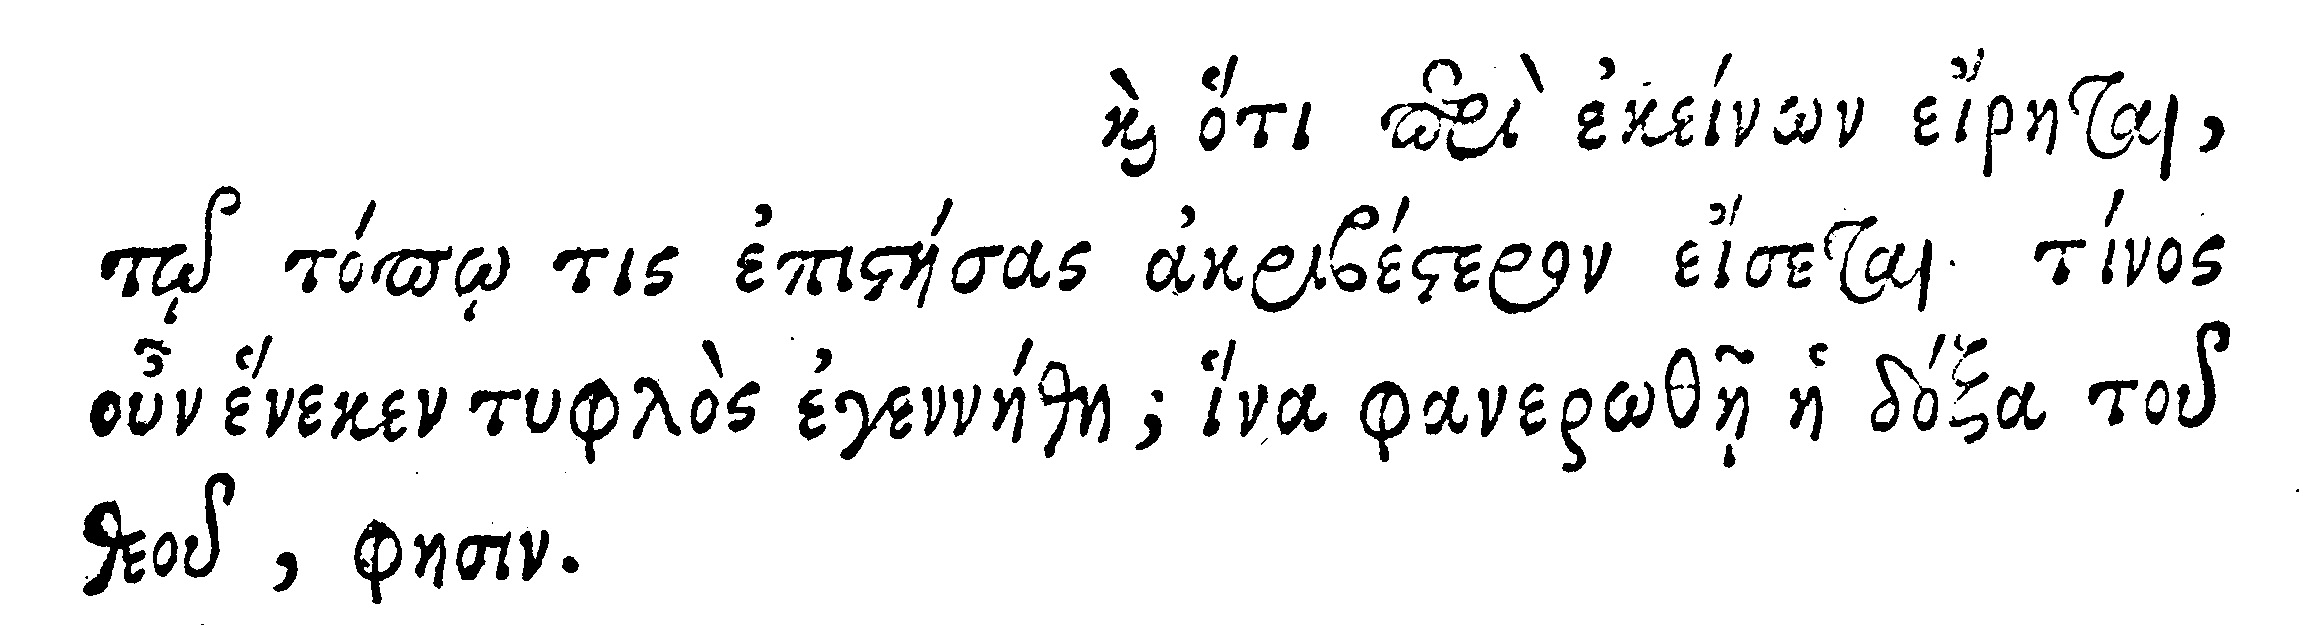 καὶ ὅτι περὶ ἐκείνων εἴρηται,
τῷ τόπῳ τις ἐπιστήσας ἀκριβέστερον εἴσεται. τίνος
οὖν ἕνεκεν τυφλὸς ἐγεννήθη; ἵνα φανερωθῇ ἡ δόξα τοῦ
θεοῦ, φησιν.